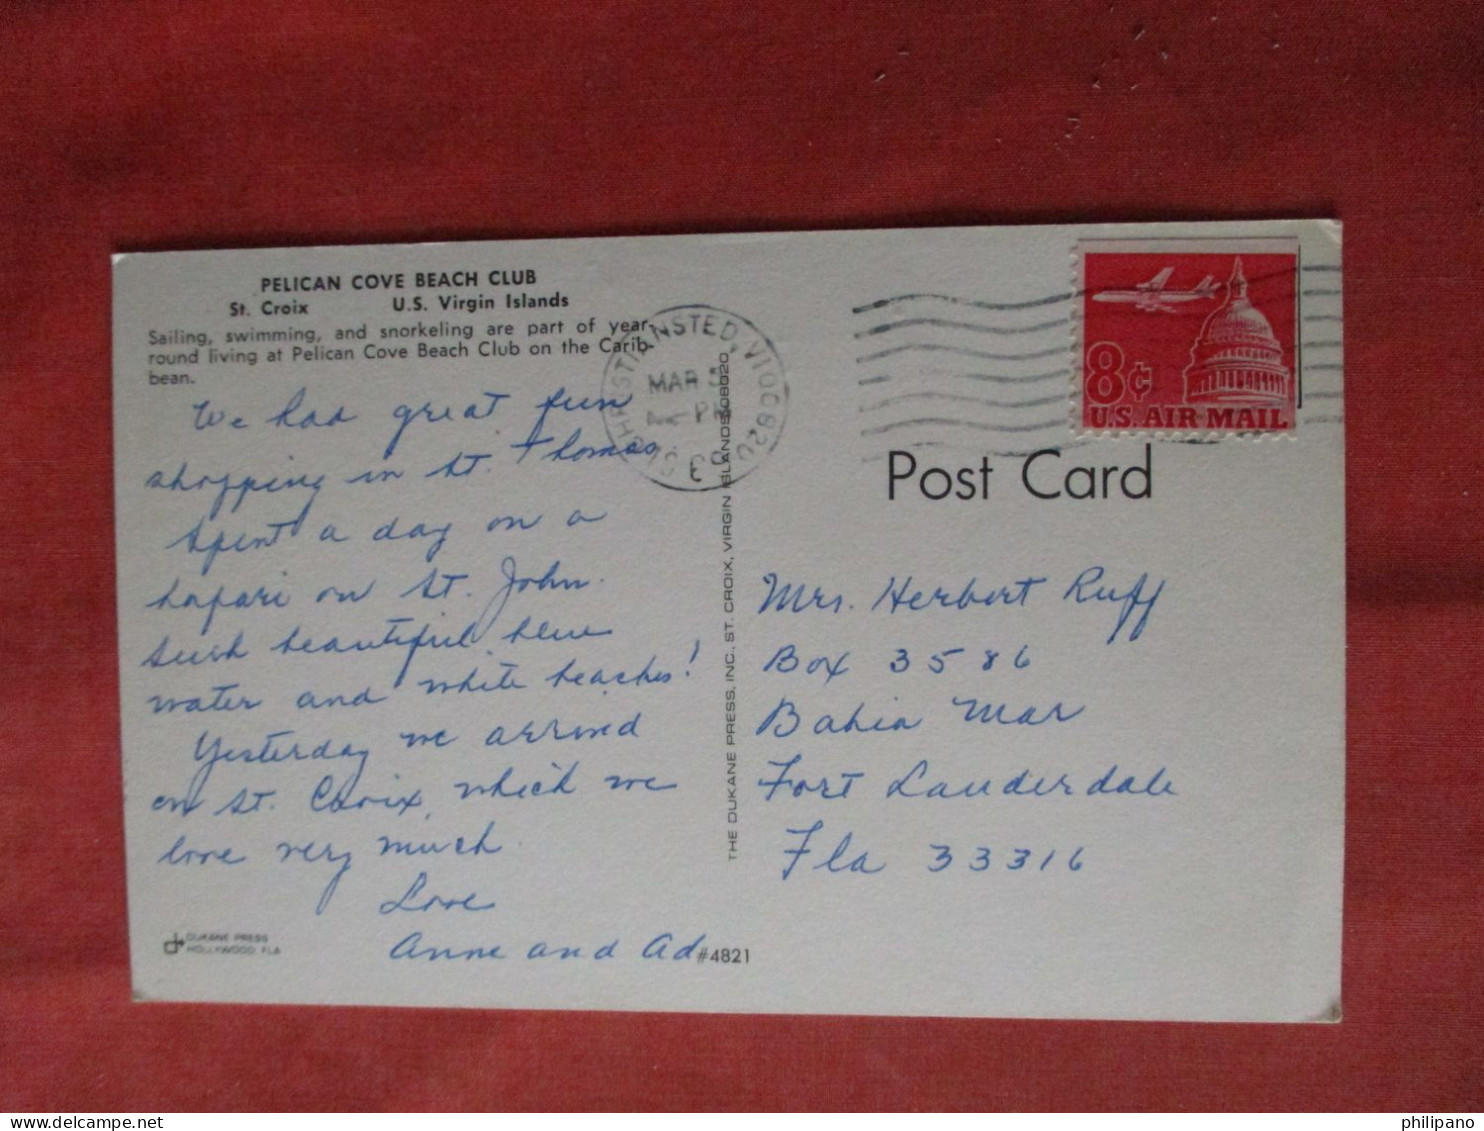 PELICAN COVE BEACH CLUB
St. Croix U.S. Virgin Islands
Sailing, swimming, and snorkeling are part of year-
round living at Pelican Cove Beach Club on the Carib-
bean.
We had great fun
shopping in St. Thomas
Spent a day on a
safari on St. John.
Such beautiful blue
water and white beaches!
Yesterday we arrived
on St. Croix, which we
love very much.
Love
Anne and Ad
DUKANE PRESS
HOLLYWOOD, FLA
#4821
THE DUKANE PRESS, INC., ST. CROIX, VIRGIN ISLANDS 08020
CHRISTIANSTED, VI 00820
MAR
PM
8¢
U.S. AIR MAIL
Post Card
Mrs. Herbert Ruff
Box 3586
Bahia Mar
Fort Lauderdale
Fla 33316
philipano